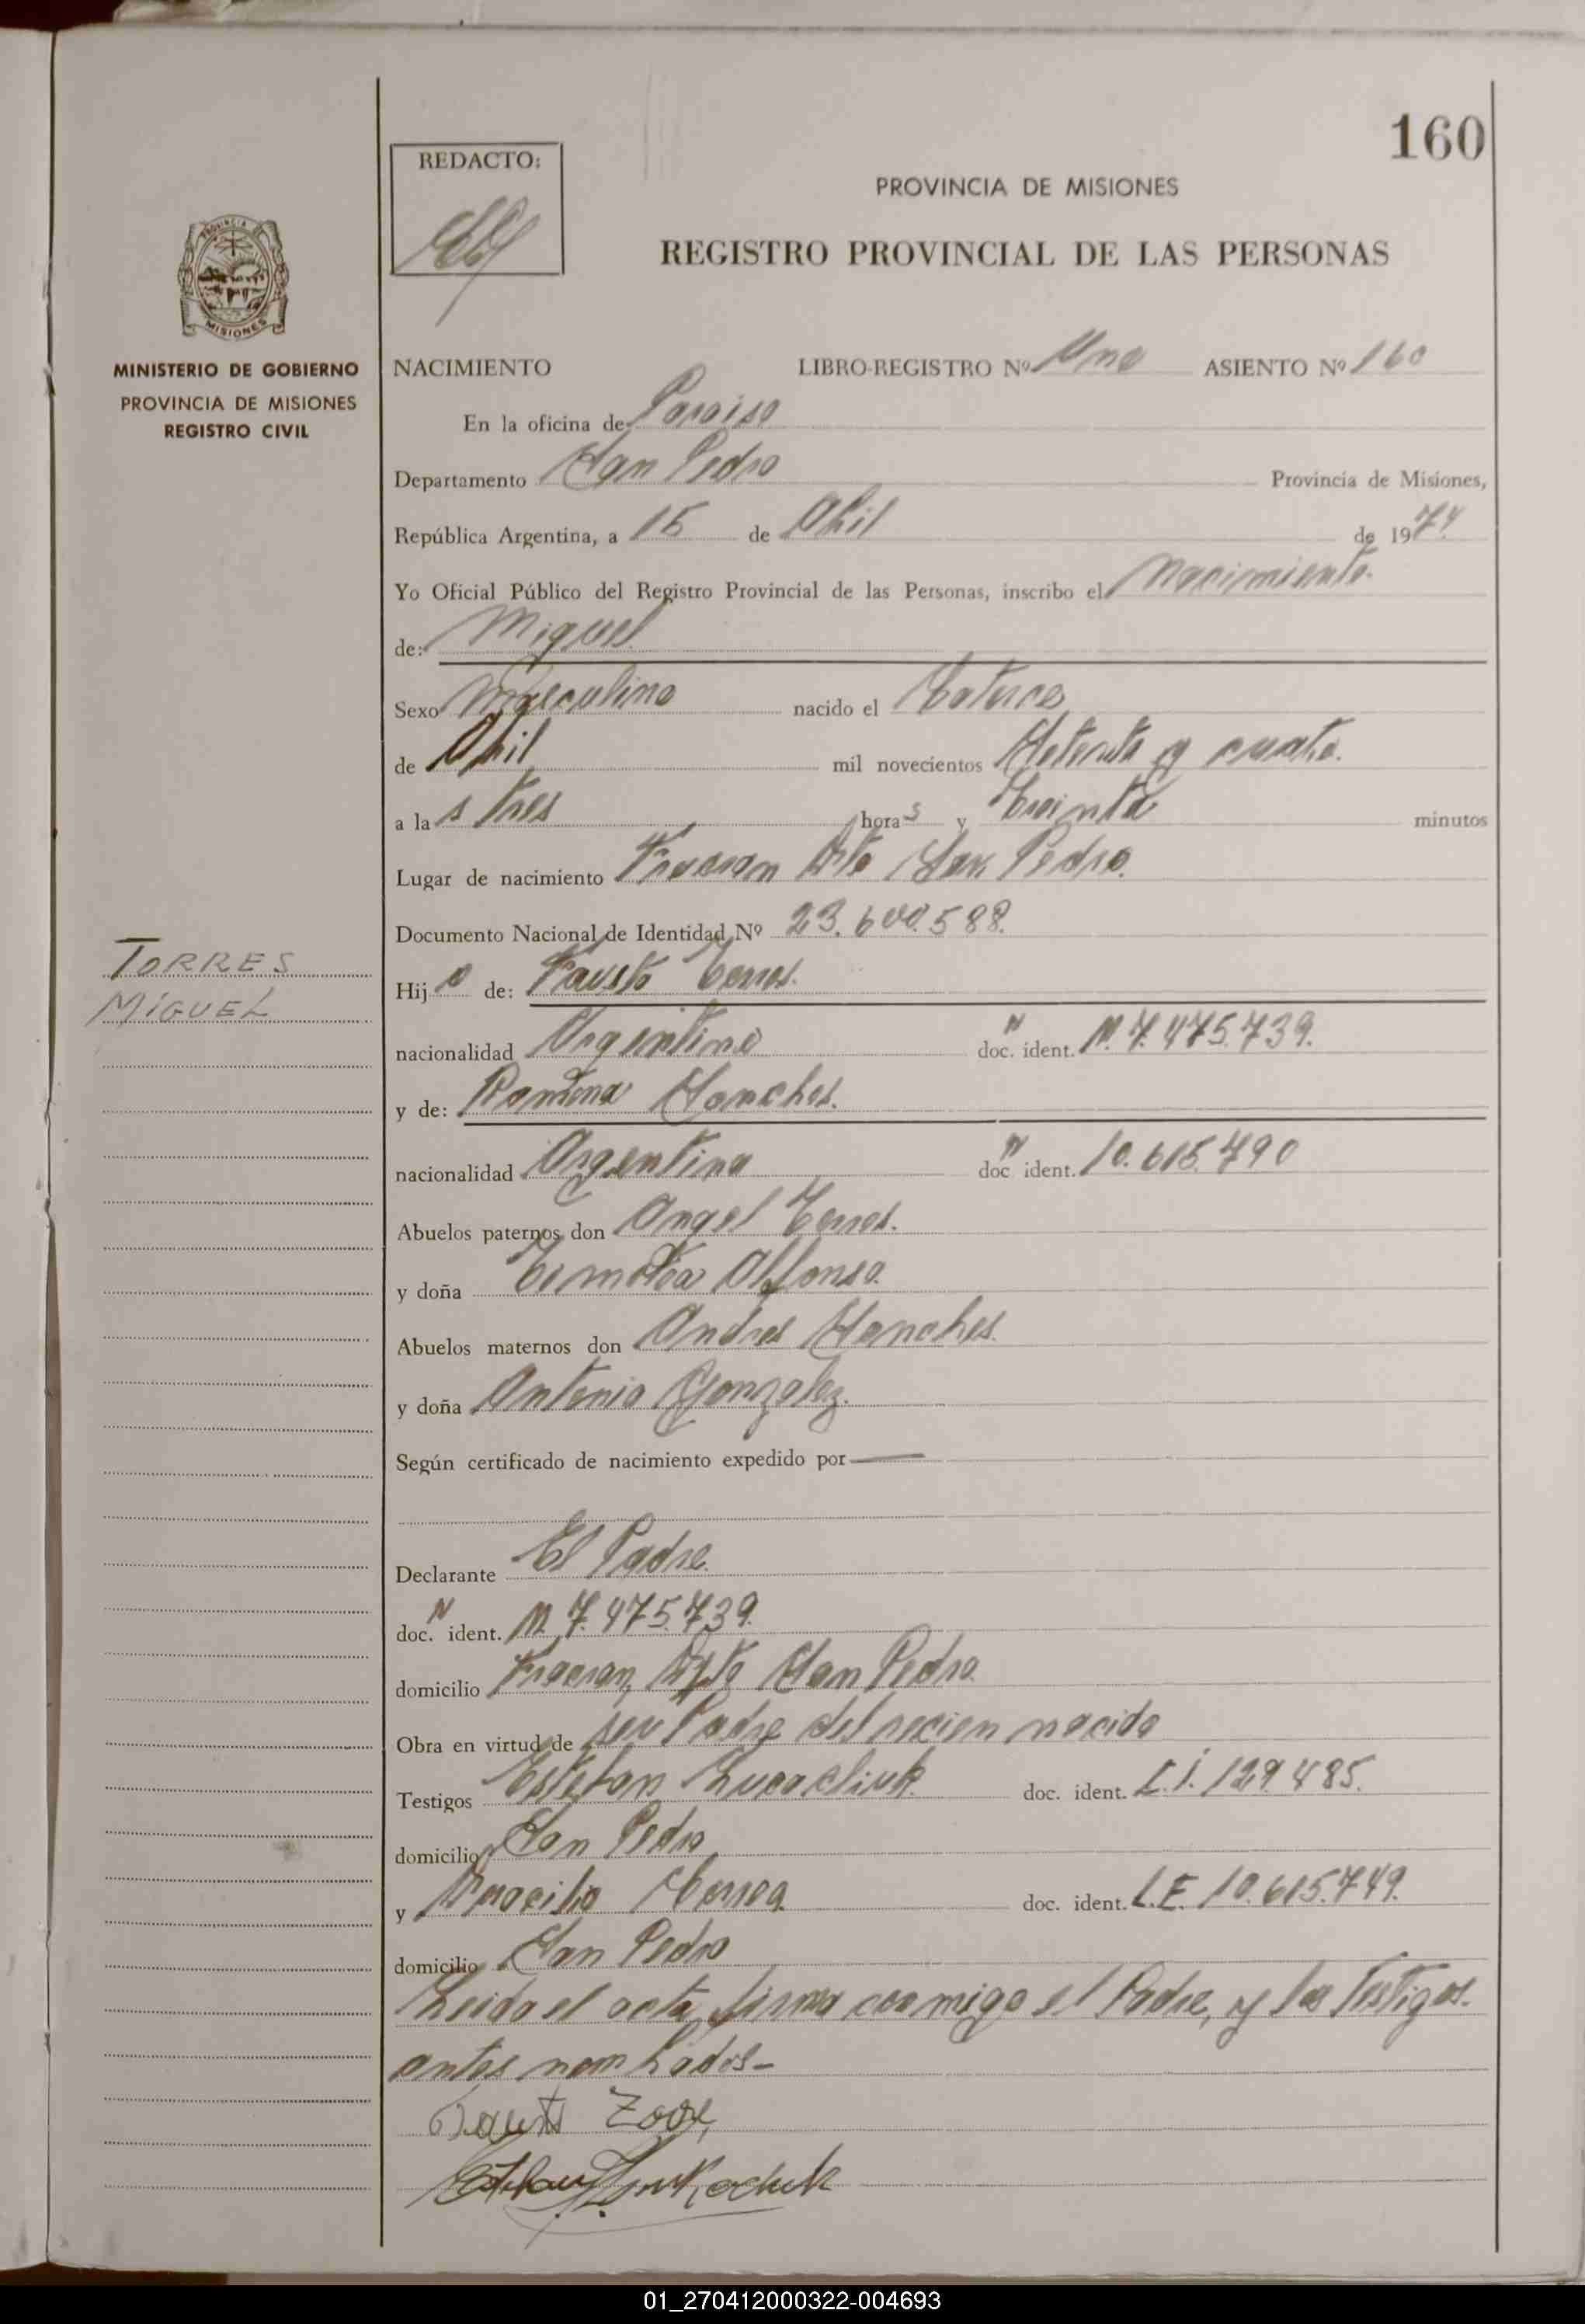 160
REDACTO:
PROVINCIA DE MISIONES
REGISTRO PROVINCIAL DE LAS PERSONAS
PROVINCIA DE
MISIONES
MINISTERIO DE GOBIERNO
PROVINCIA DE MISIONES
REGISTRO CIVIL
TORRES
MIGUEL
NACIMIENTO LIBRO-REGISTRO Nº Uno ASIENTO Nº 160
En la oficina de Paraiso
Departamento San Pedro Provincia de Misiones,
República Argentina, a 15 de Abril de 1974
Yo Oficial Público del Registro Provincial de las Personas, inscribo el Nacimiento.
de: Miguel
Sexo Masculino nacido el Catorce
de Abril mil novecientos Setenta y cuatro.
a la s tres hora s y treinta minutos
Lugar de nacimiento Fracran Dto San Pedro.
Documento Nacional de Identidad Nº 23.600.588.
Hij o de: Fausto Torres.
nacionalidad Argentino doc. N ident. M. 7.475.739.
y de: Ramona Sanches.
nacionalidad Argentina doc N ident. 10.615.790
Abuelos paternos don Angel Torres.
y doña Timotea Alfonso.
Abuelos maternos don Andres Sanches.
y doña Antonia Gonzalez.
Según certificado de nacimiento expedido por —
Declarante El Padre.
doc. N ident. M. 7.475.739.
domicilio Fracran, Dpto San Pedro.
Obra en virtud de ser Padre del recien nacido
Testigos Estefan doc. ident. C.I. 129.485.
domicilio San Pedro
y doc. ident. L.E. 10.615.749.
domicilio San Pedro
Leida el acta, firma conmigo el Padre, y los Testigos.
antes nombrados-
01_270412000322-004693